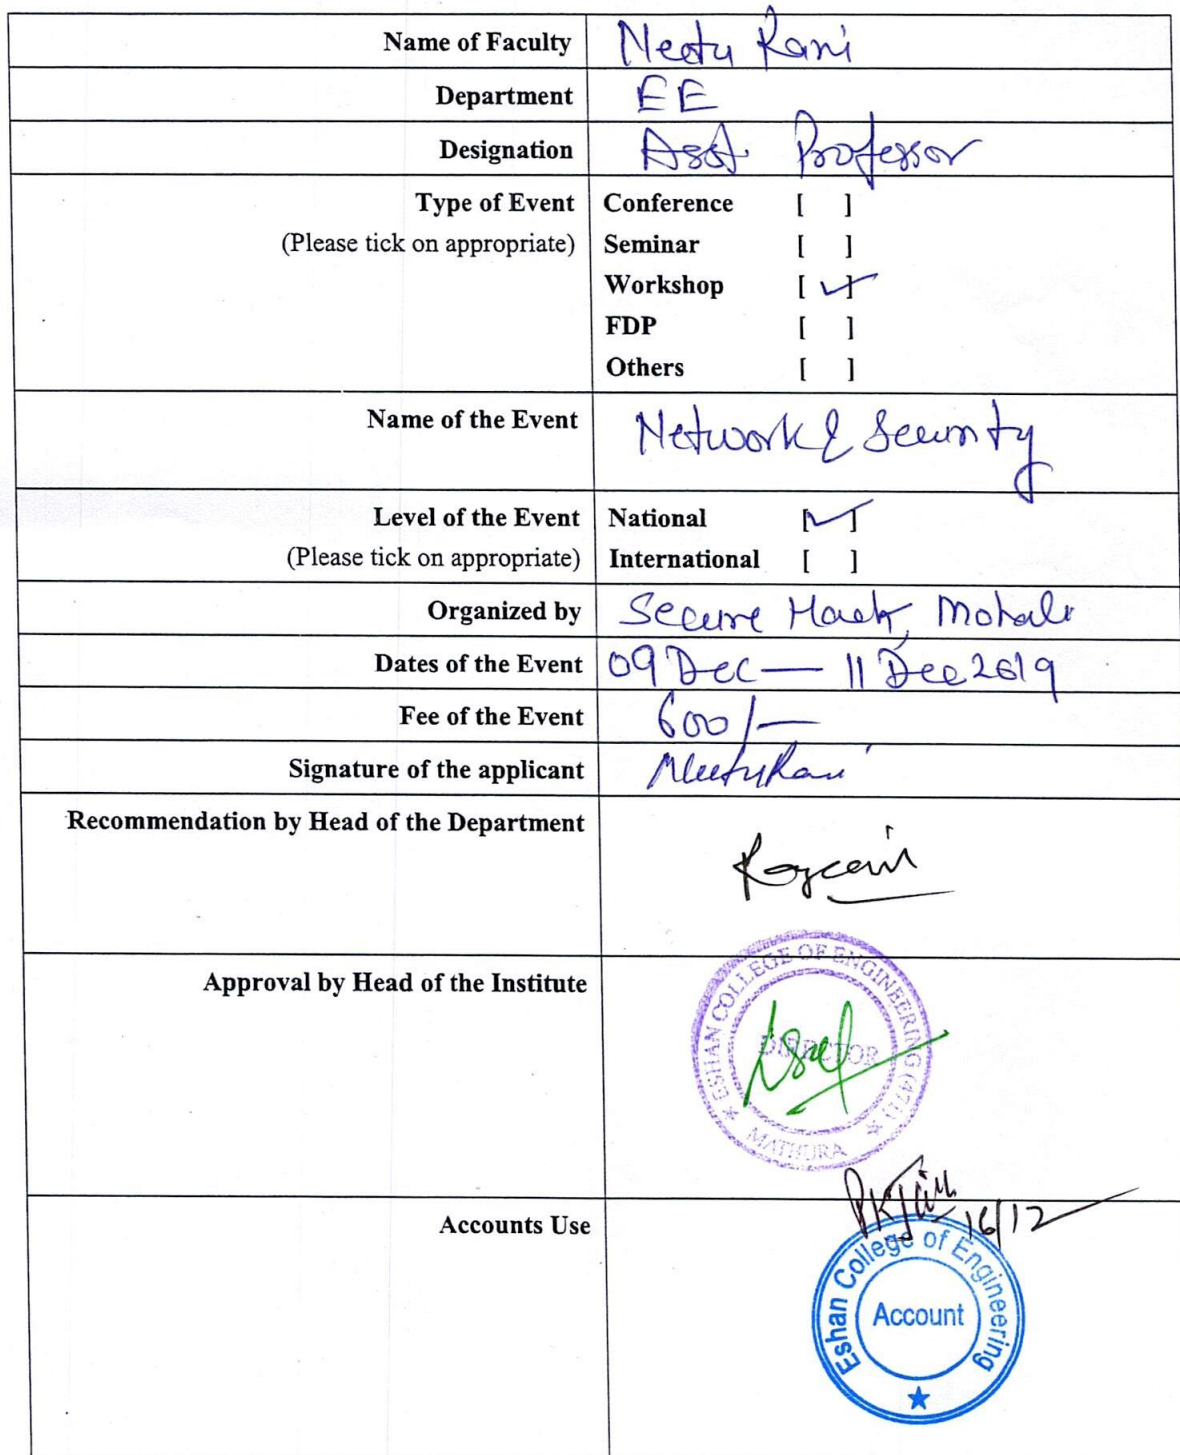 Name of Faculty Neetu Rani
Department EE
Designation Asst. Professor
Type of Event Conference [ ]
(Please tick on appropriate) Seminar [ ]
Workshop [ ✓ ]
FDP [ ]
Others [ ]
Name of the Event Network & Security
Level of the Event National [ ✓ ]
(Please tick on appropriate) International [ ]
Organized by Secure Hack, Mohali
Dates of the Event 09 Dec — 11 Dec 2019
Fee of the Event 600/-
Signature of the applicant Neetu Rani
Recommendation by Head of the Department
Approval by Head of the Institute
ESHAN COLLEGE OF ENGINEERING (471)
DIRECTOR
MATHURA
Accounts Use
PKJain 16/12
Eshan College of Engineering
Account